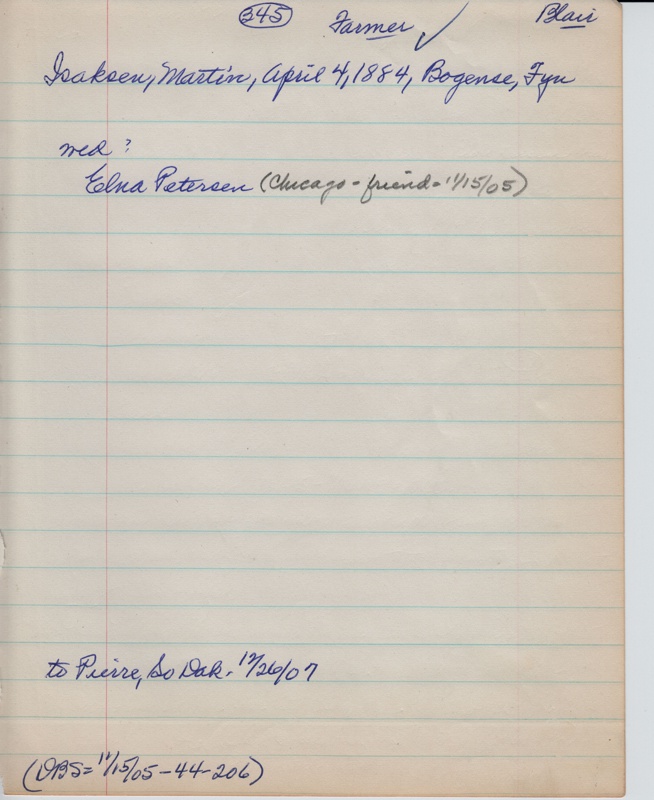 345 Farmer ✓ Blair
Isaksen, Martin, April 4, 1884, Bogense, Fyn
wed?
Edna Petersen (Chicago - friend = 11/15/05)
to Pierre, So Dak. 12/26/07
(DBS = 11/15/05 - 44 - 206)